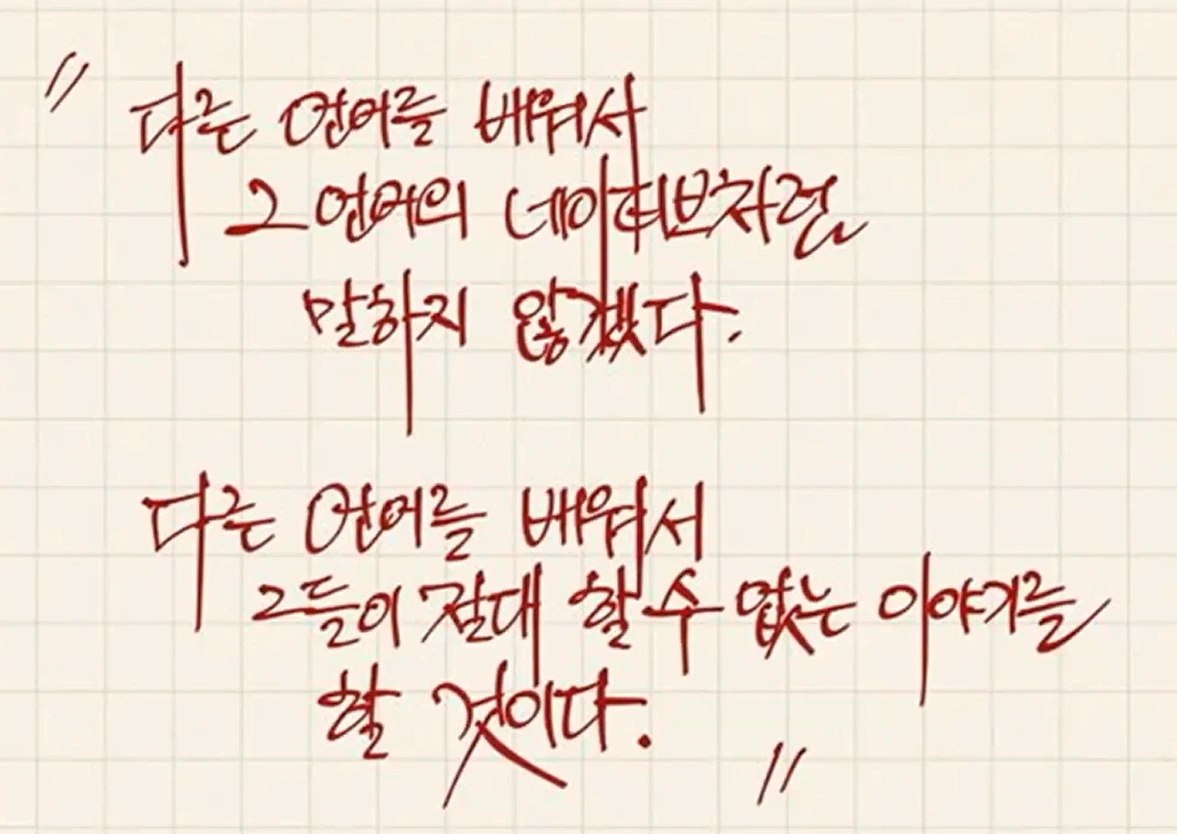 "다른 언어를 배워서
그 언어의 네이티브처럼
말하지 않겠다.
다른 언어를 배워서
그들이 절대 할 수 없는 이야기를
할 것이다."